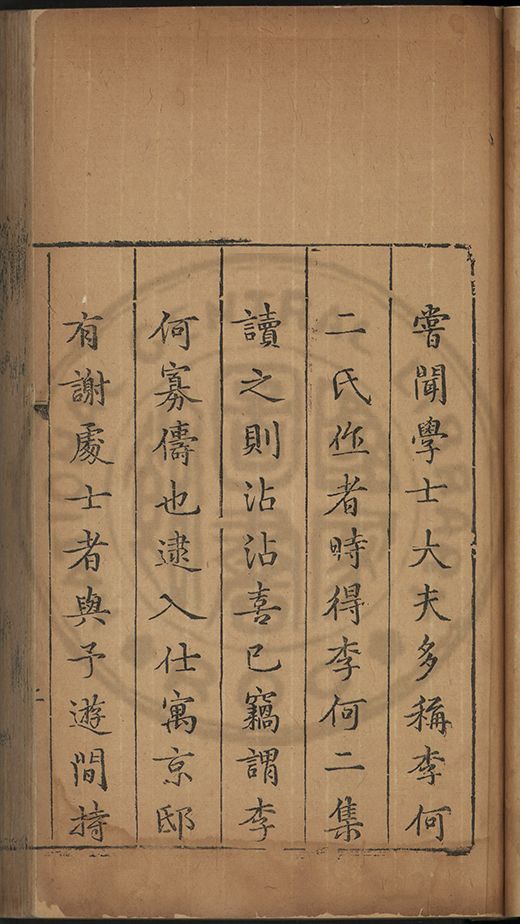 嘗聞學士大夫多稱李何
二氏作者時得李何二集
讀之則沾沾喜已竊謂李
何寡儔也逮入仕寓京邸
有謝處士者與予遊間持